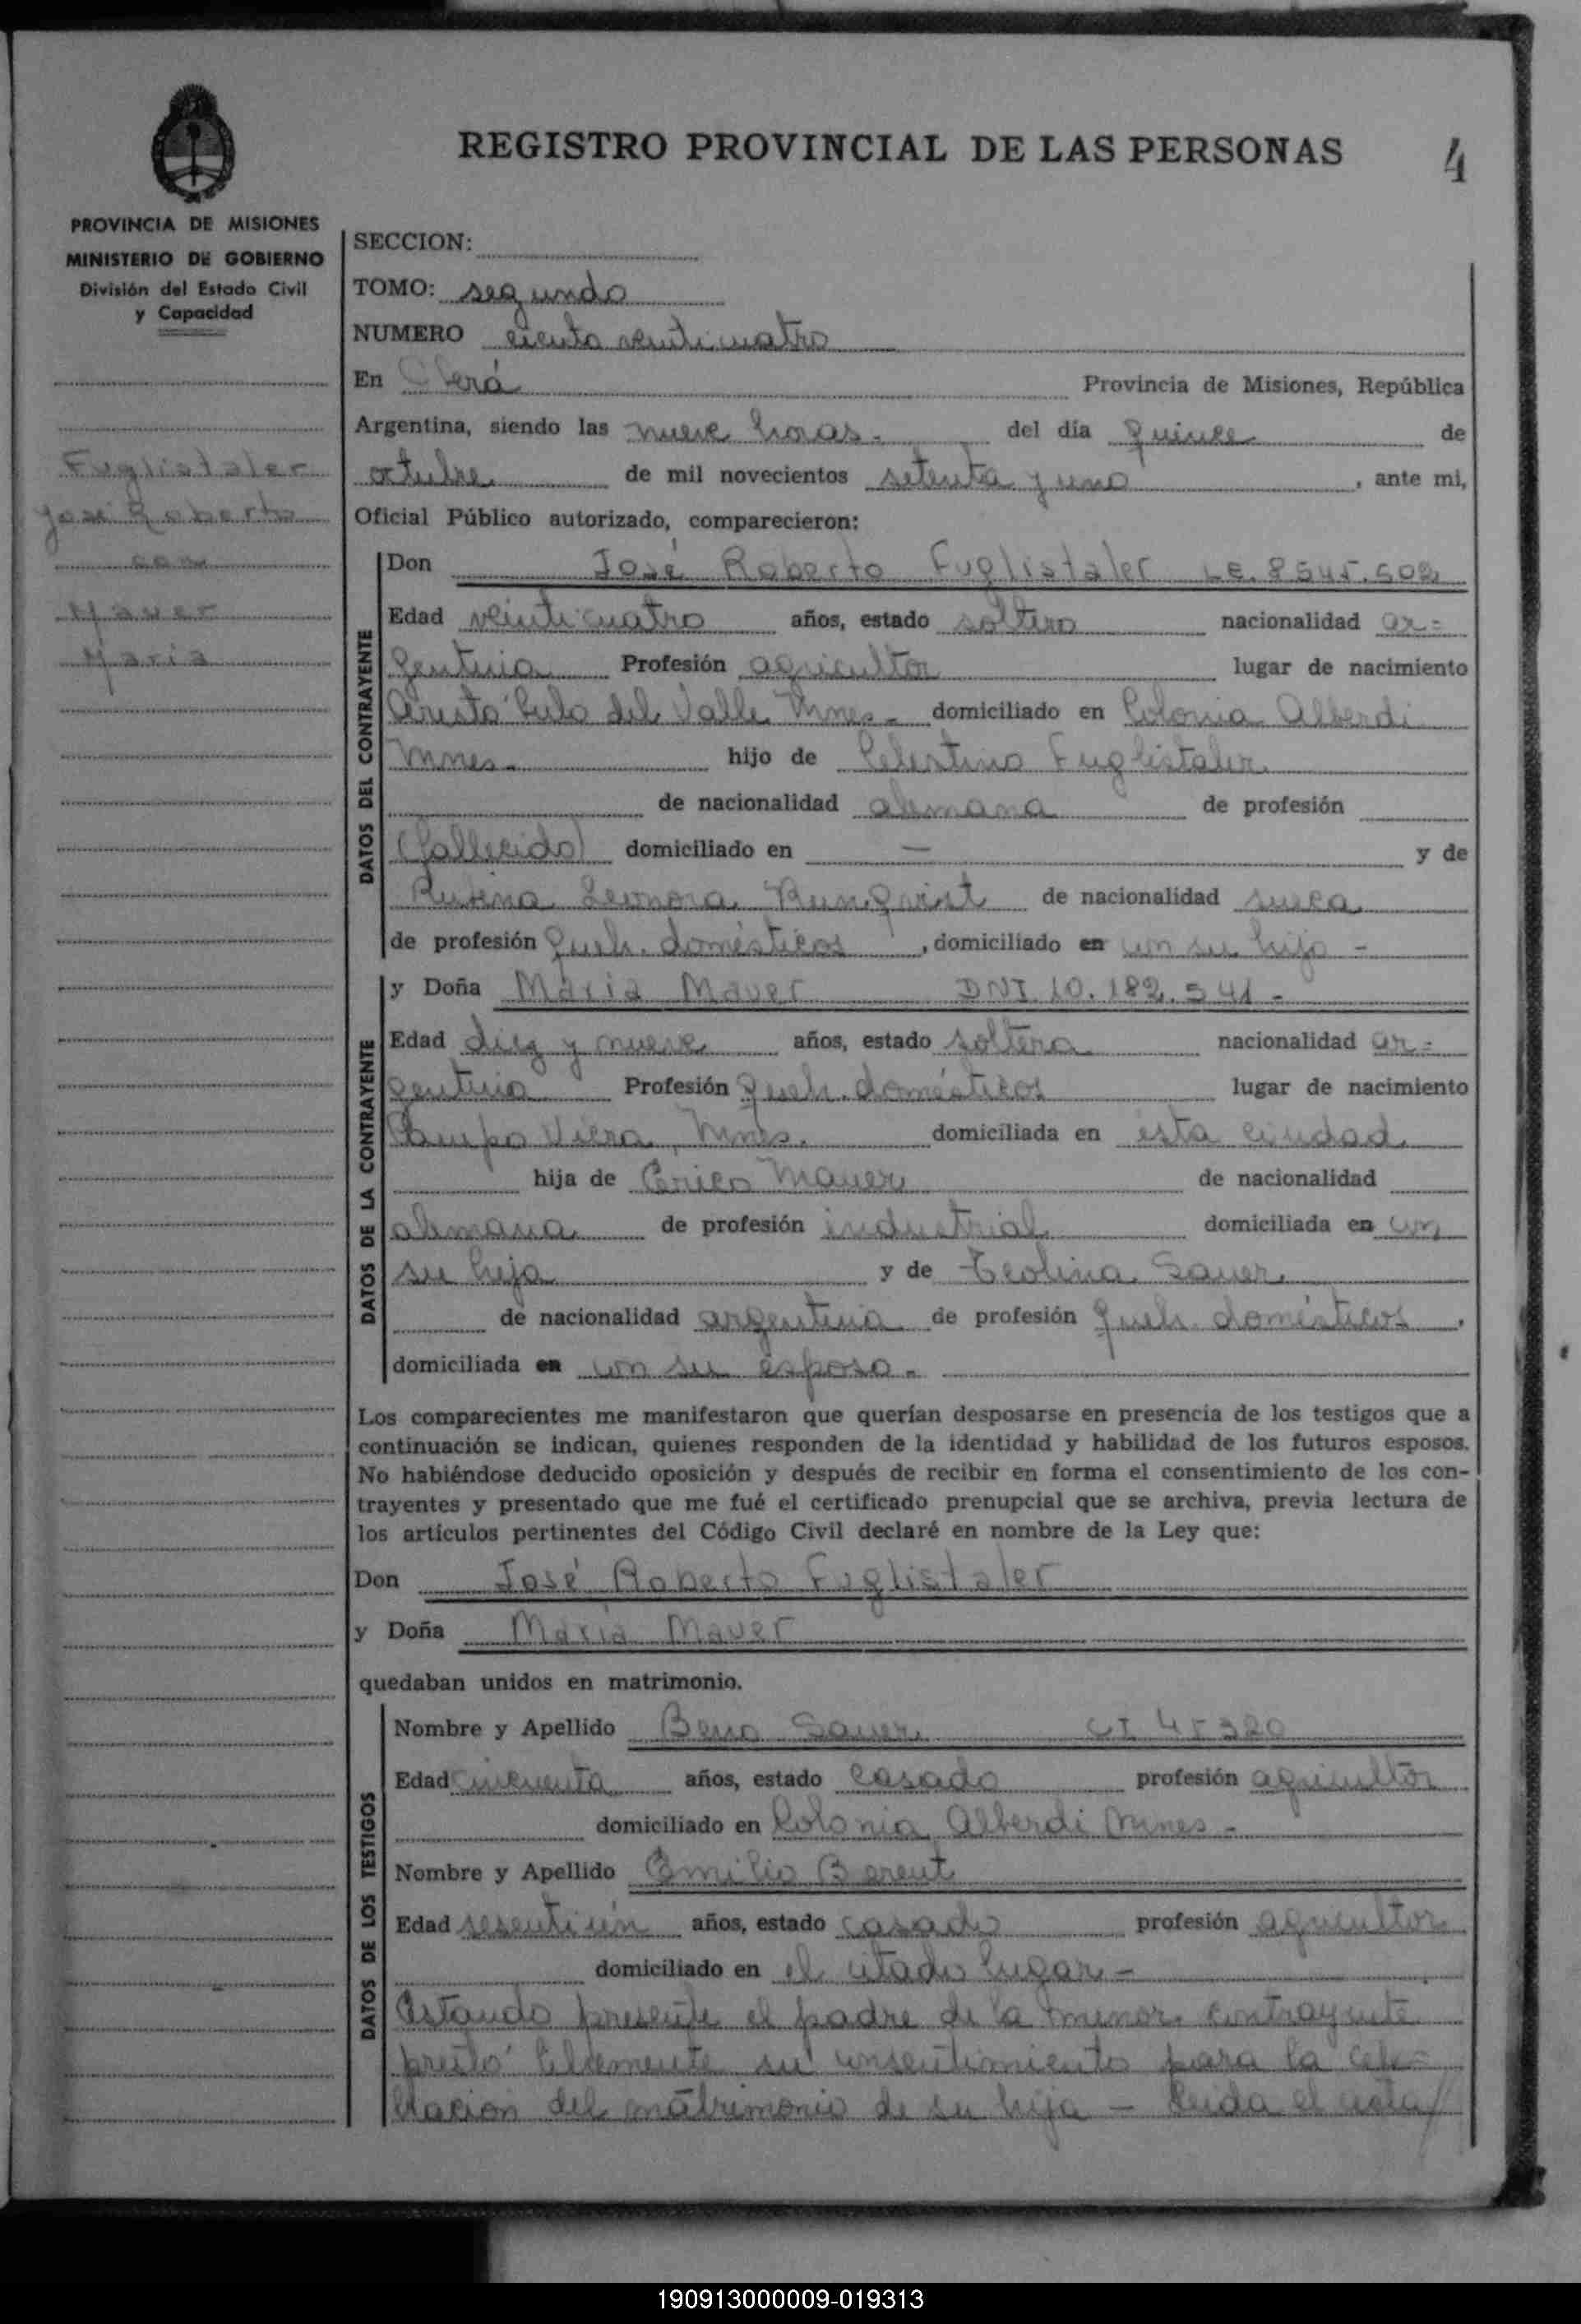 REGISTRO PROVINCIAL DE LAS PERSONAS
4
PROVINCIA DE MISIONES
MINISTERIO DE GOBIERNO
División del Estado Civil
y Capacidad
Fuglistaler
José Roberto
con
Mauer
María
SECCION:
TOMO: segundo
NUMERO ciento veinticuatro
En Oberá Provincia de Misiones, República
Argentina, siendo las nueve horas.- del día quince de
octubre de mil novecientos setenta y uno, ante mi,
Oficial Público autorizado, comparecieron:
DATOS DEL CONTRAYENTE
Don José Roberto Fuglistaler LE. 8545.502
Edad veinticuatro años, estado soltero nacionalidad ar=
gentina Profesión agricultor lugar de nacimiento
Aristóbulo del Valle Mnes.- domiciliado en Colonia Alberdi
Mnes.- hijo de Celestino Fuglistaler
de nacionalidad alemana de profesión
(fallecido) domiciliado en — y de
Leonora Runqvist de nacionalidad sueca
de profesión queh. domésticos, domiciliado en con su hijo -
DATOS DE LA CONTRAYENTE
y Doña María Mauer DNI 10.182.541-
Edad diez y nueve años, estado soltera nacionalidad ar=
gentina Profesión queh. domésticos lugar de nacimiento
Campo Viera, Mnes. domiciliada en esta ciudad
hija de Erico Mauer de nacionalidad
alemana de profesión industrial domiciliada en con
su hija y de Teolina Sauer
de nacionalidad argentina de profesión queh. domésticos,
domiciliada en con su esposo.-
Los comparecientes me manifestaron que querían desposarse en presencia de los testigos que a
continuación se indican, quienes responden de la identidad y habilidad de los futuros esposos.
No habiéndose deducido oposición y después de recibir en forma el consentimiento de los con-
trayentes y presentado que me fué el certificado prenupcial que se archiva, previa lectura de
los artículos pertinentes del Código Civil declaré en nombre de la Ley que:
Don José Roberto Fuglistaler
y Doña María Mauer
quedaban unidos en matrimonio.
DATOS DE LOS TESTIGOS
Nombre y Apellido Beno Sauer CI 45320
Edad cincuenta años, estado casado profesión agricultor
domiciliado en Colonia Alberdi Mnes-
Nombre y Apellido Emilio Berent
Edad sesentiún años, estado casado profesión agricultor
domiciliado en el citado lugar-
Estando presente el padre de la menor contrayente
prestó libremente su consentimiento para la cele=
bración del matrimonio de su hija - Leida el acta/
190913000009-019313